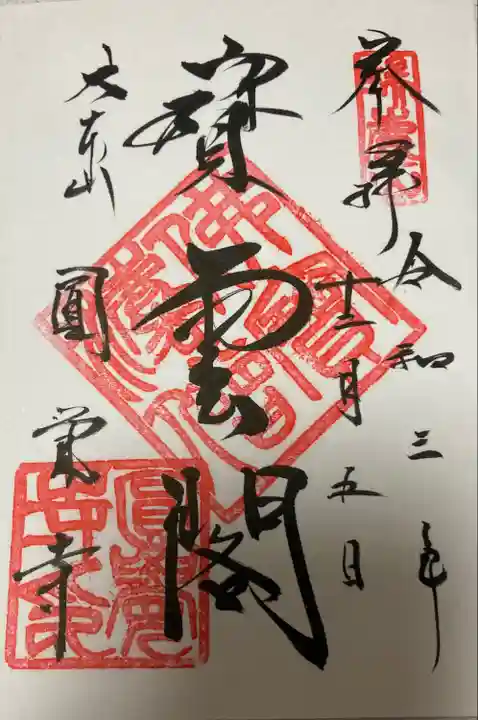 奉拝
令和三年
十二月五日
寳雲閣
大本山
圓覚寺